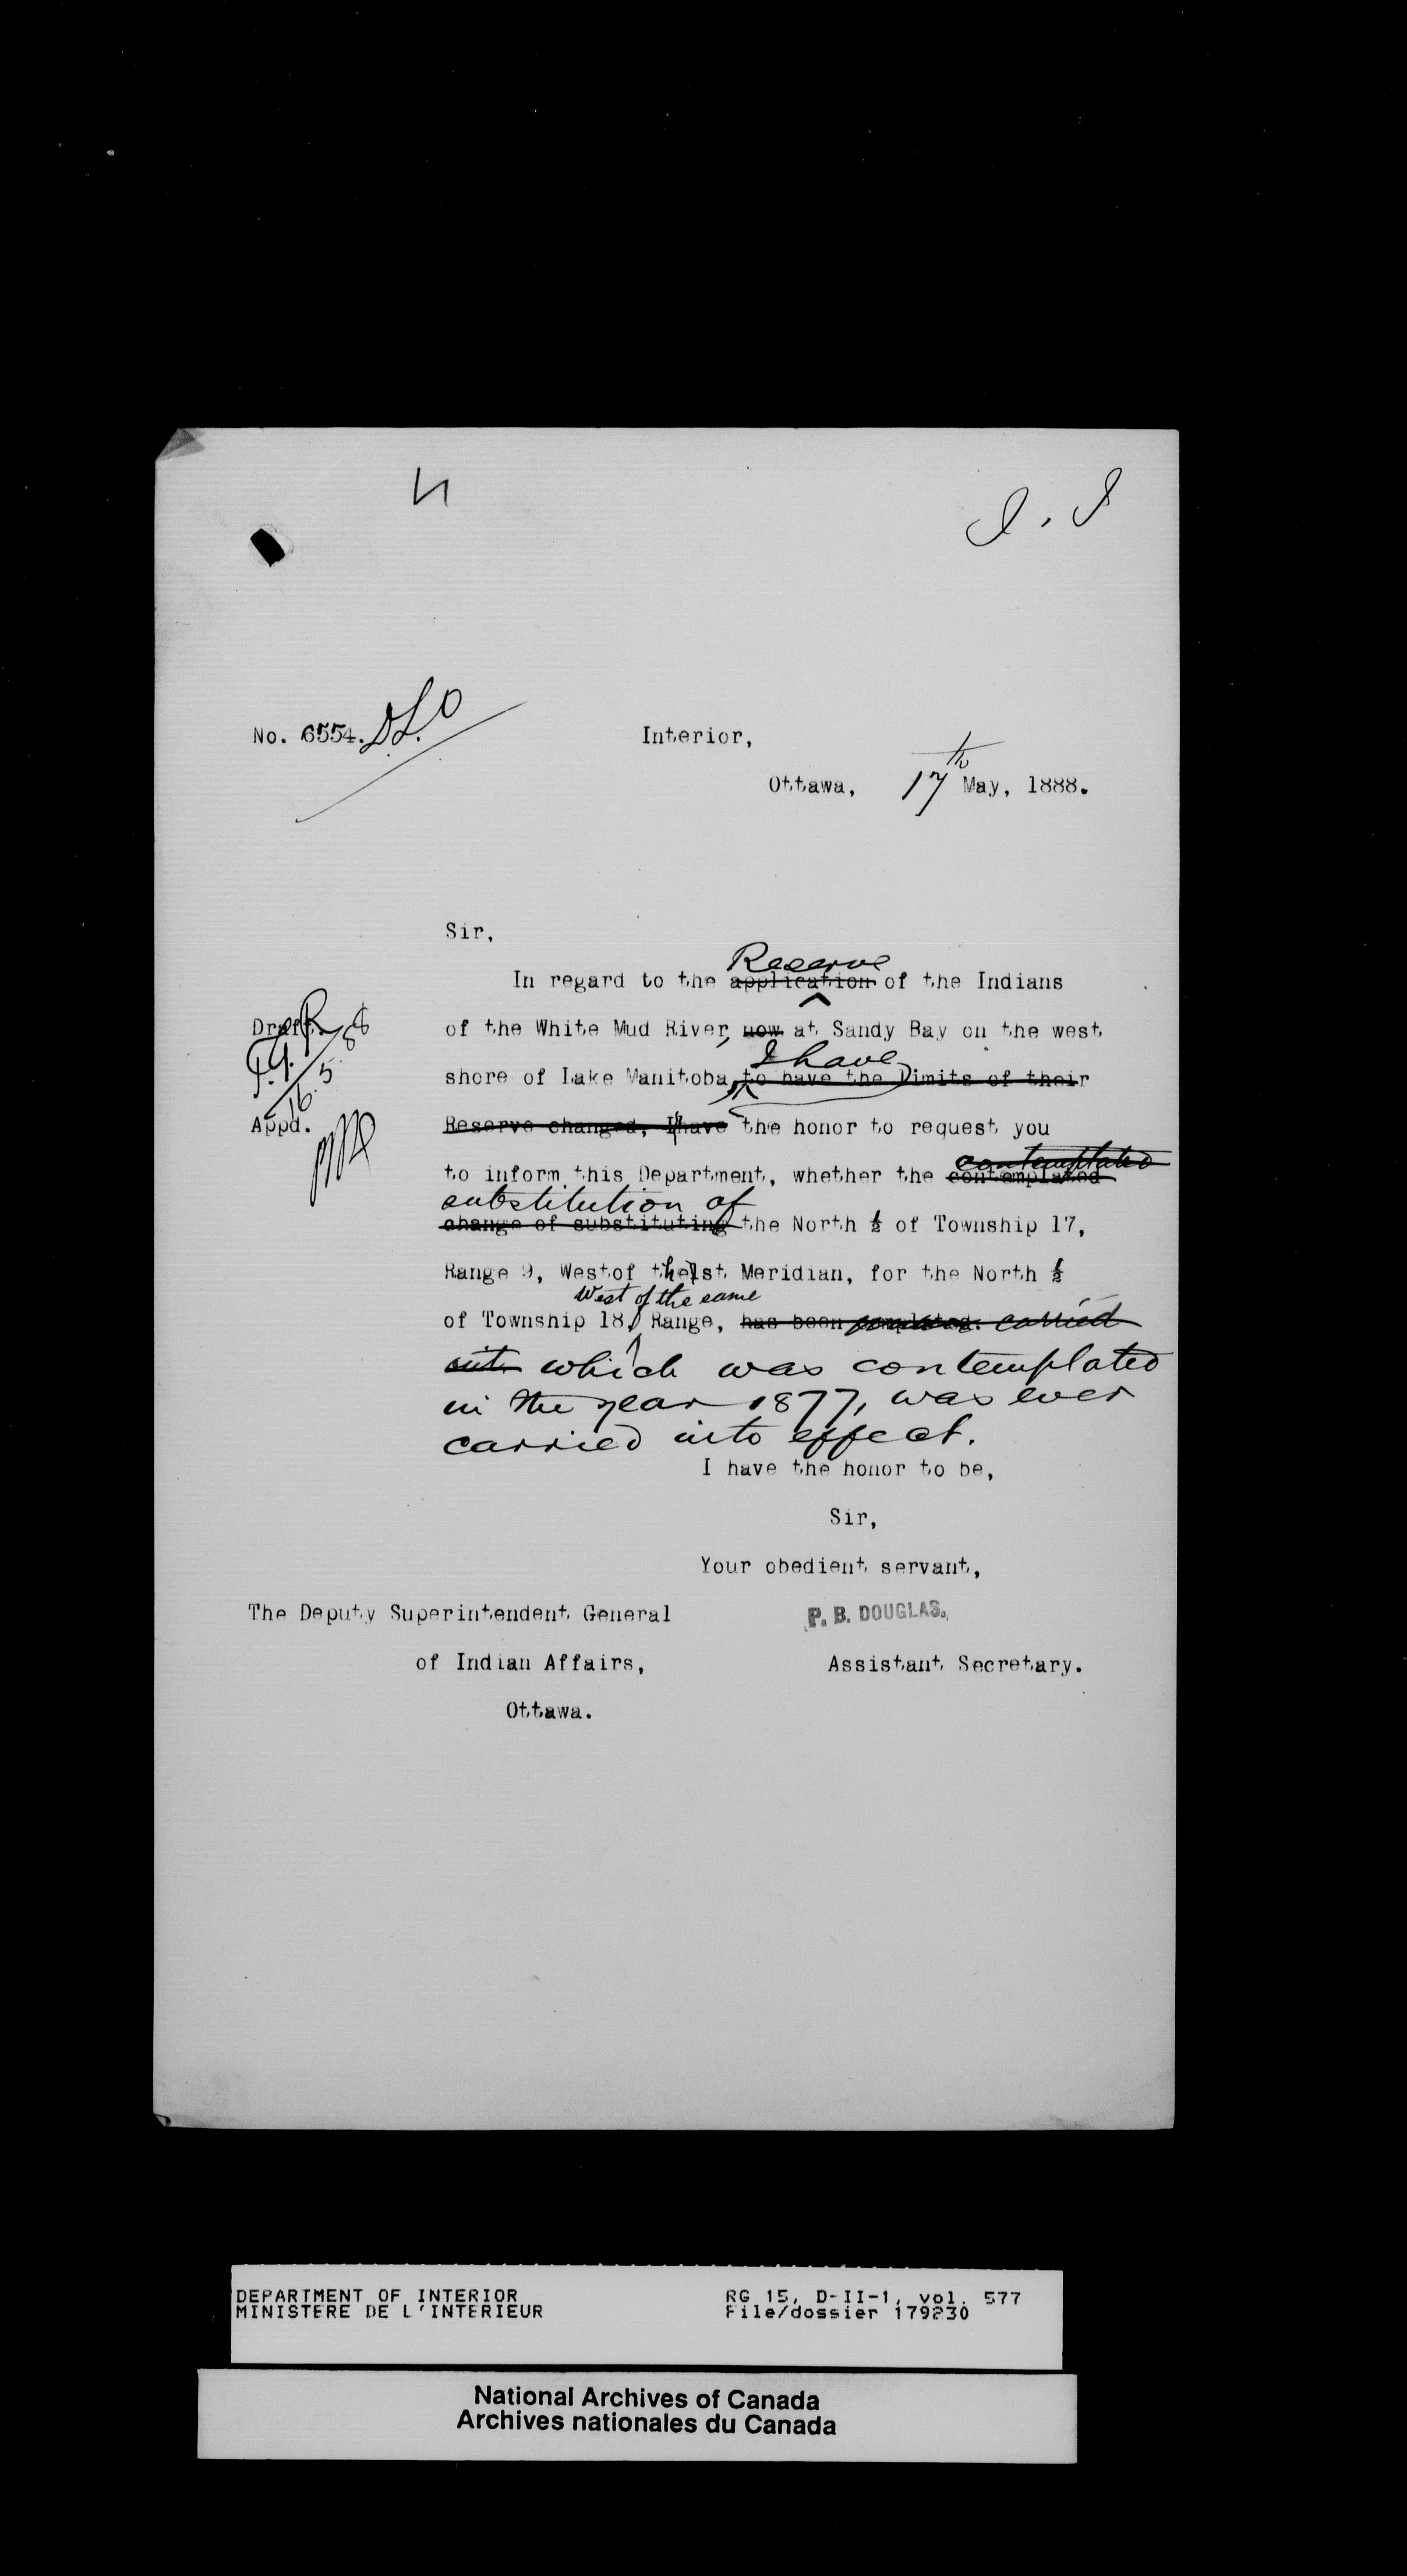 No. 6554. D.L.O
Interior,
Ottawa, 17th May, 1888.
Sir,
Reserve
In regard to the application of the Indians
Draft.
of the White Mud River, now at Sandy Bay on the west
I have
shore of Lake Manitoba, to have the limits of their
16.5.88
Appd.
Reserve changed, I have the honor to request you
contemplated
to inform this Department, whether the contemplated
substitution of
change of substituting the North ½ of Township 17,
Range 9, West of the 1st Meridian, for the North ½
West of the same
of Township 18, Range, has been completed. carried
into which was contemplated
in the year 1877, was ever
carried into effect.
I have the honor to be,
Sir,
Your obedient servant,
The Deputy Superintendent General
P. B. DOUGLAS.,
of Indian Affairs,
Assistant Secretary.
Ottawa.
DEPARTMENT OF INTERIOR
MINISTERE DE L'INTERIEUR
RG 15, D-II-1, vol. 577
File/dossier 179230
National Archives of Canada
Archives nationales du Canada